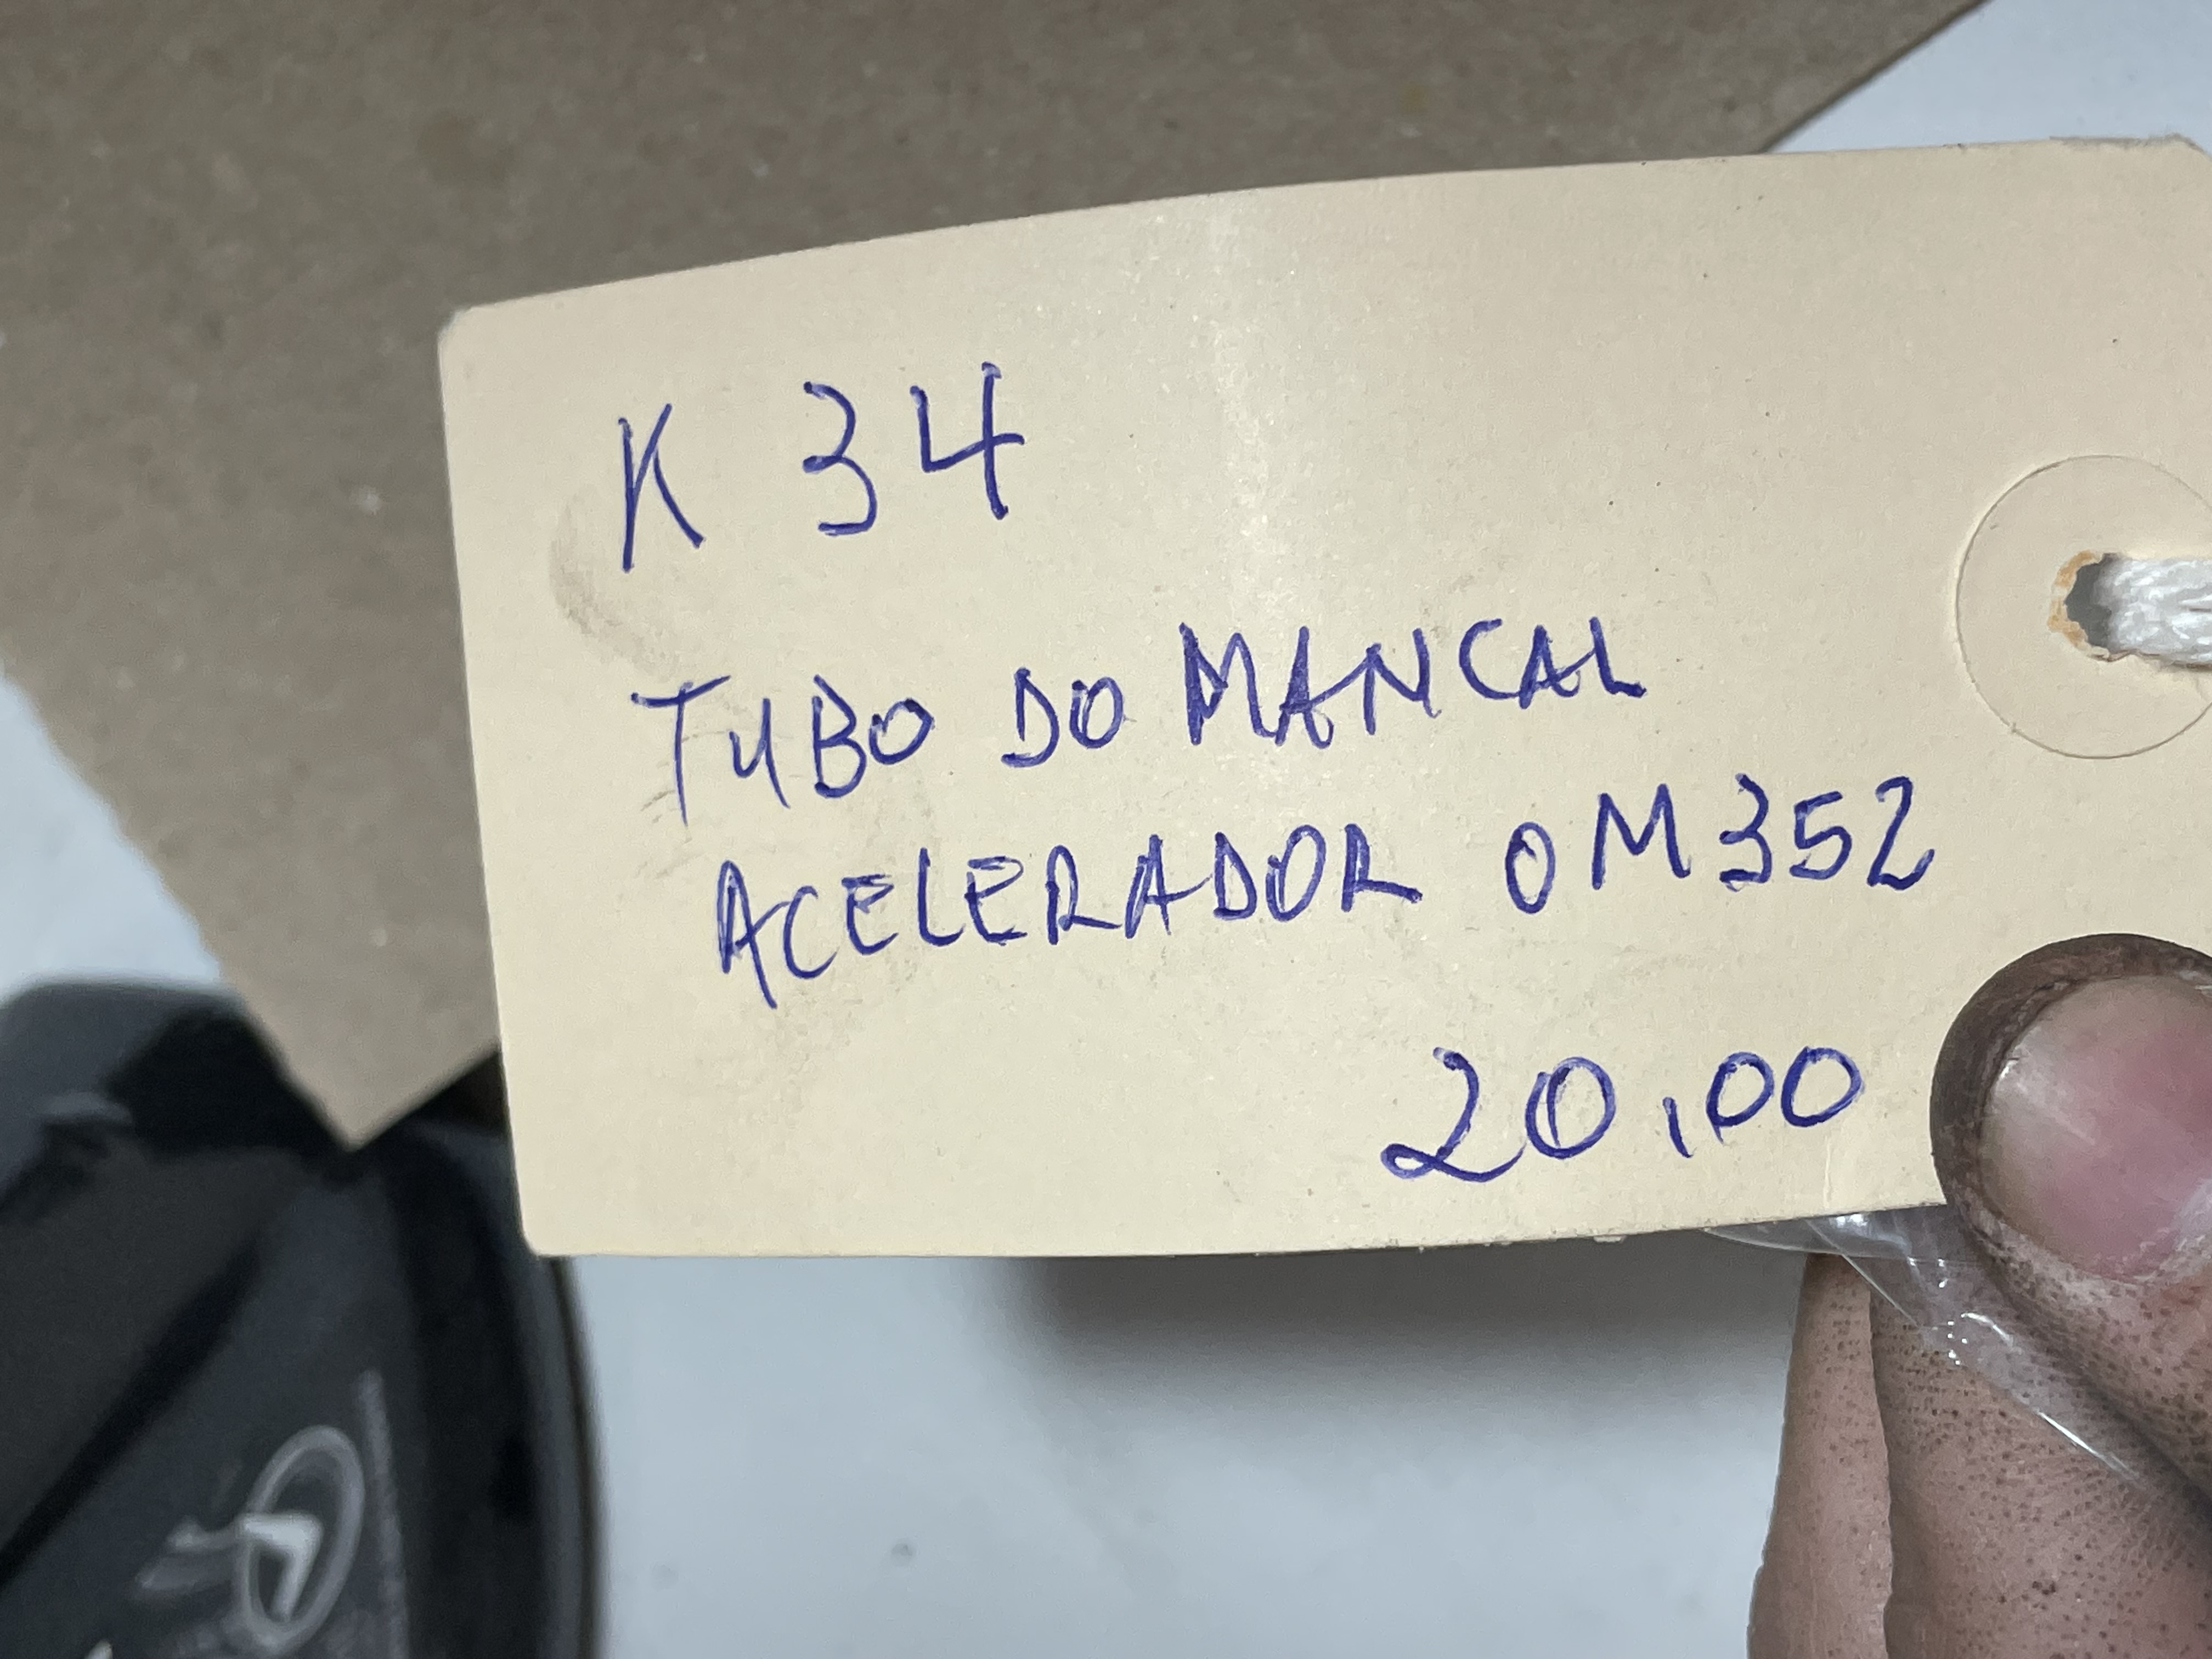 K 34
TUBO DO MANCAL
ACELERADOR OM352
20,00